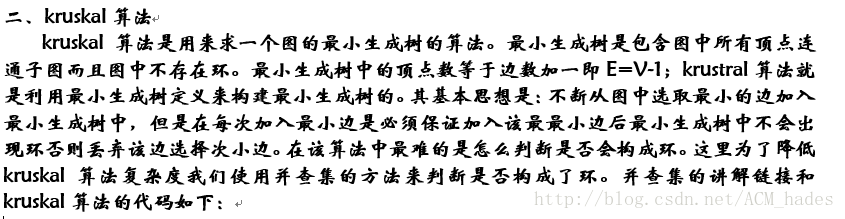 二、kruskal 算法
kruskal 算法是用来求一个图的最小生成树的算法。最小生成树是包含图中所有顶点连
通子图而且图中不存在环。最小生成树中的顶点数等于边数加一即 E=V-1；krustral 算法就
是利用最小生成树定义来构建最小生成树的。其基本思想是：不断从图中选取最小的边加入
最小生成树中，但是在每次加入最小边是必须保证加入该最最小边后最小生成树中不会出
现环否则丢弃该边选择次小边。在该算法中最难的是怎么判断是否会构成环。这里为了降低
kruskal 算法复杂度我们使用并查集的方法来判断是否构成了环。并查集的讲解链接和
kruskal 算法的代码如下：
http://blog.csdn.net/ACM_hades